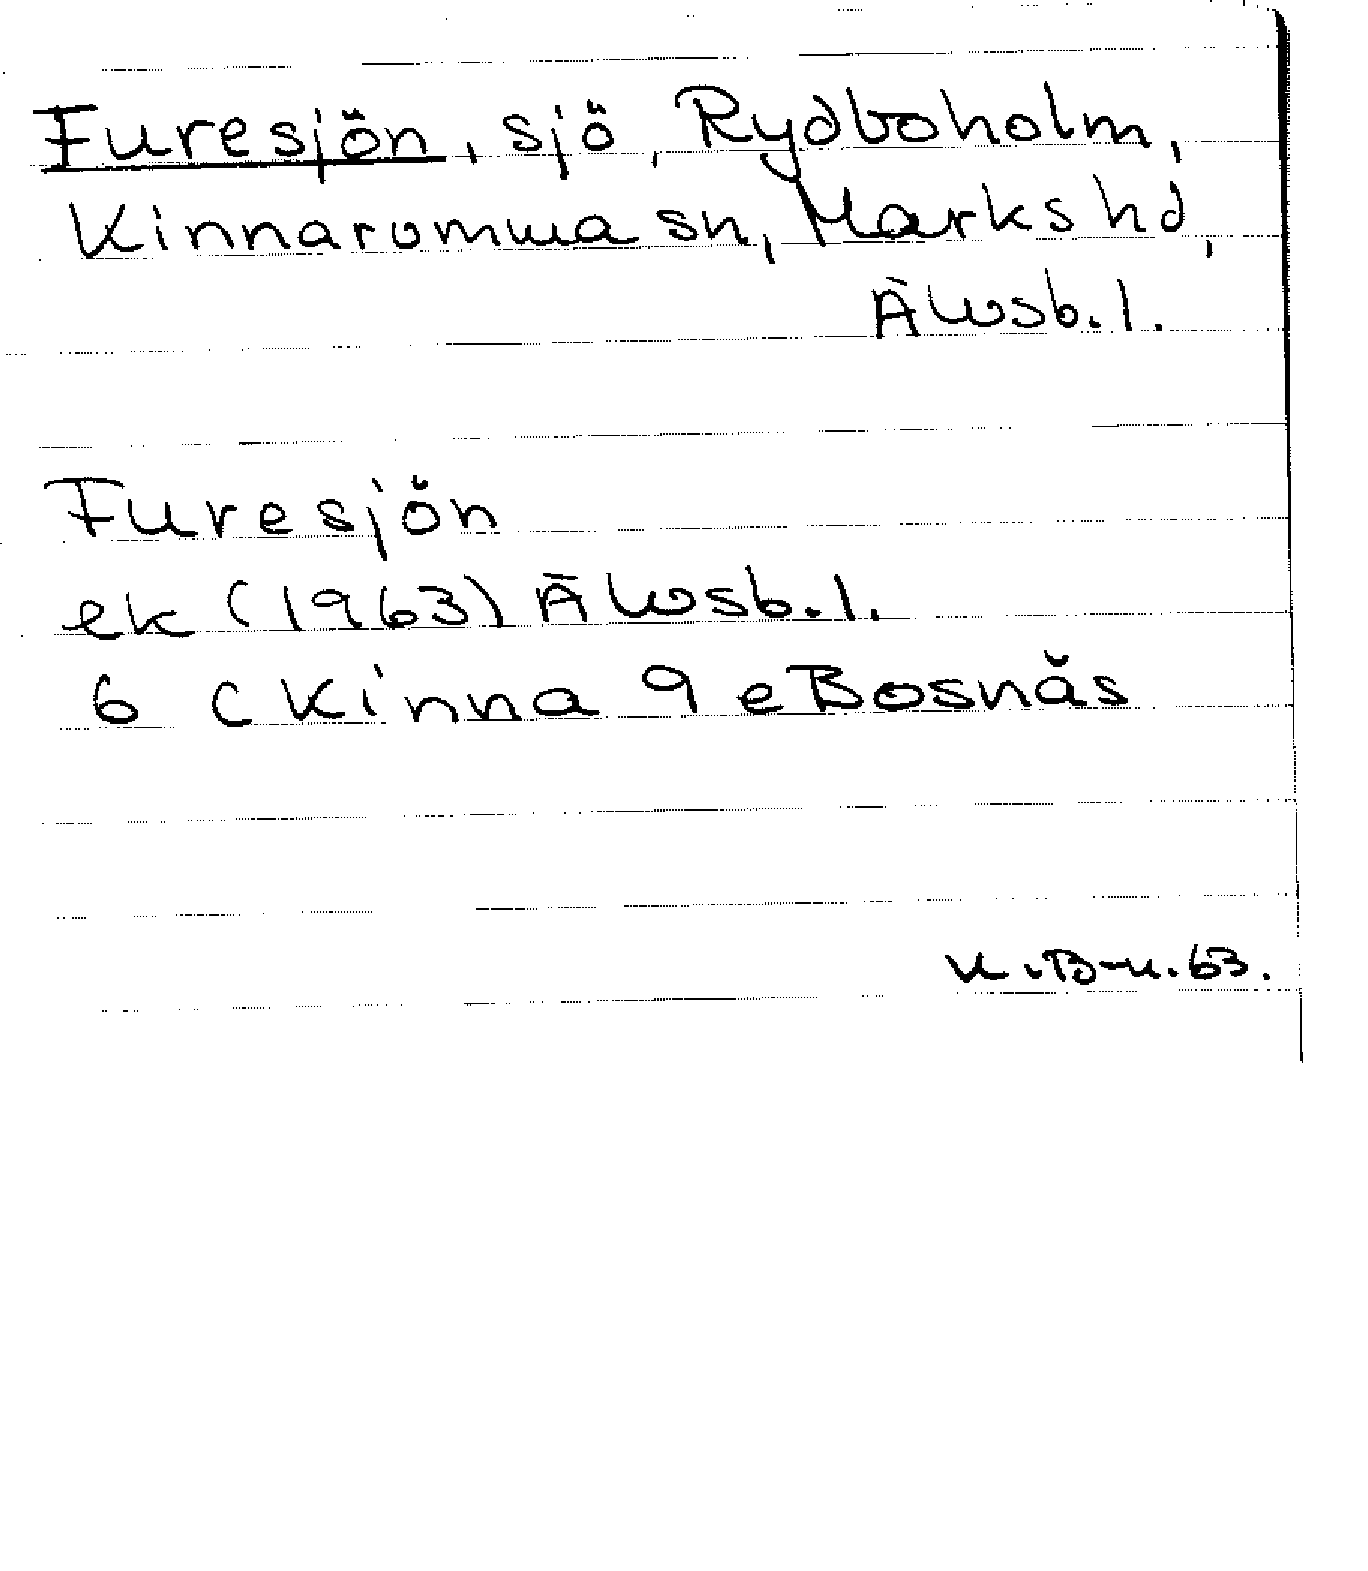 Furesjön, sjö, Rydboholm,
Kinnarumma sn, Marks hd,
Älvsb. l.
Furesjön
ek (1963) Älvsb. l.
6 C Kinna 9 e Bosnäs
K.B-n. 63.